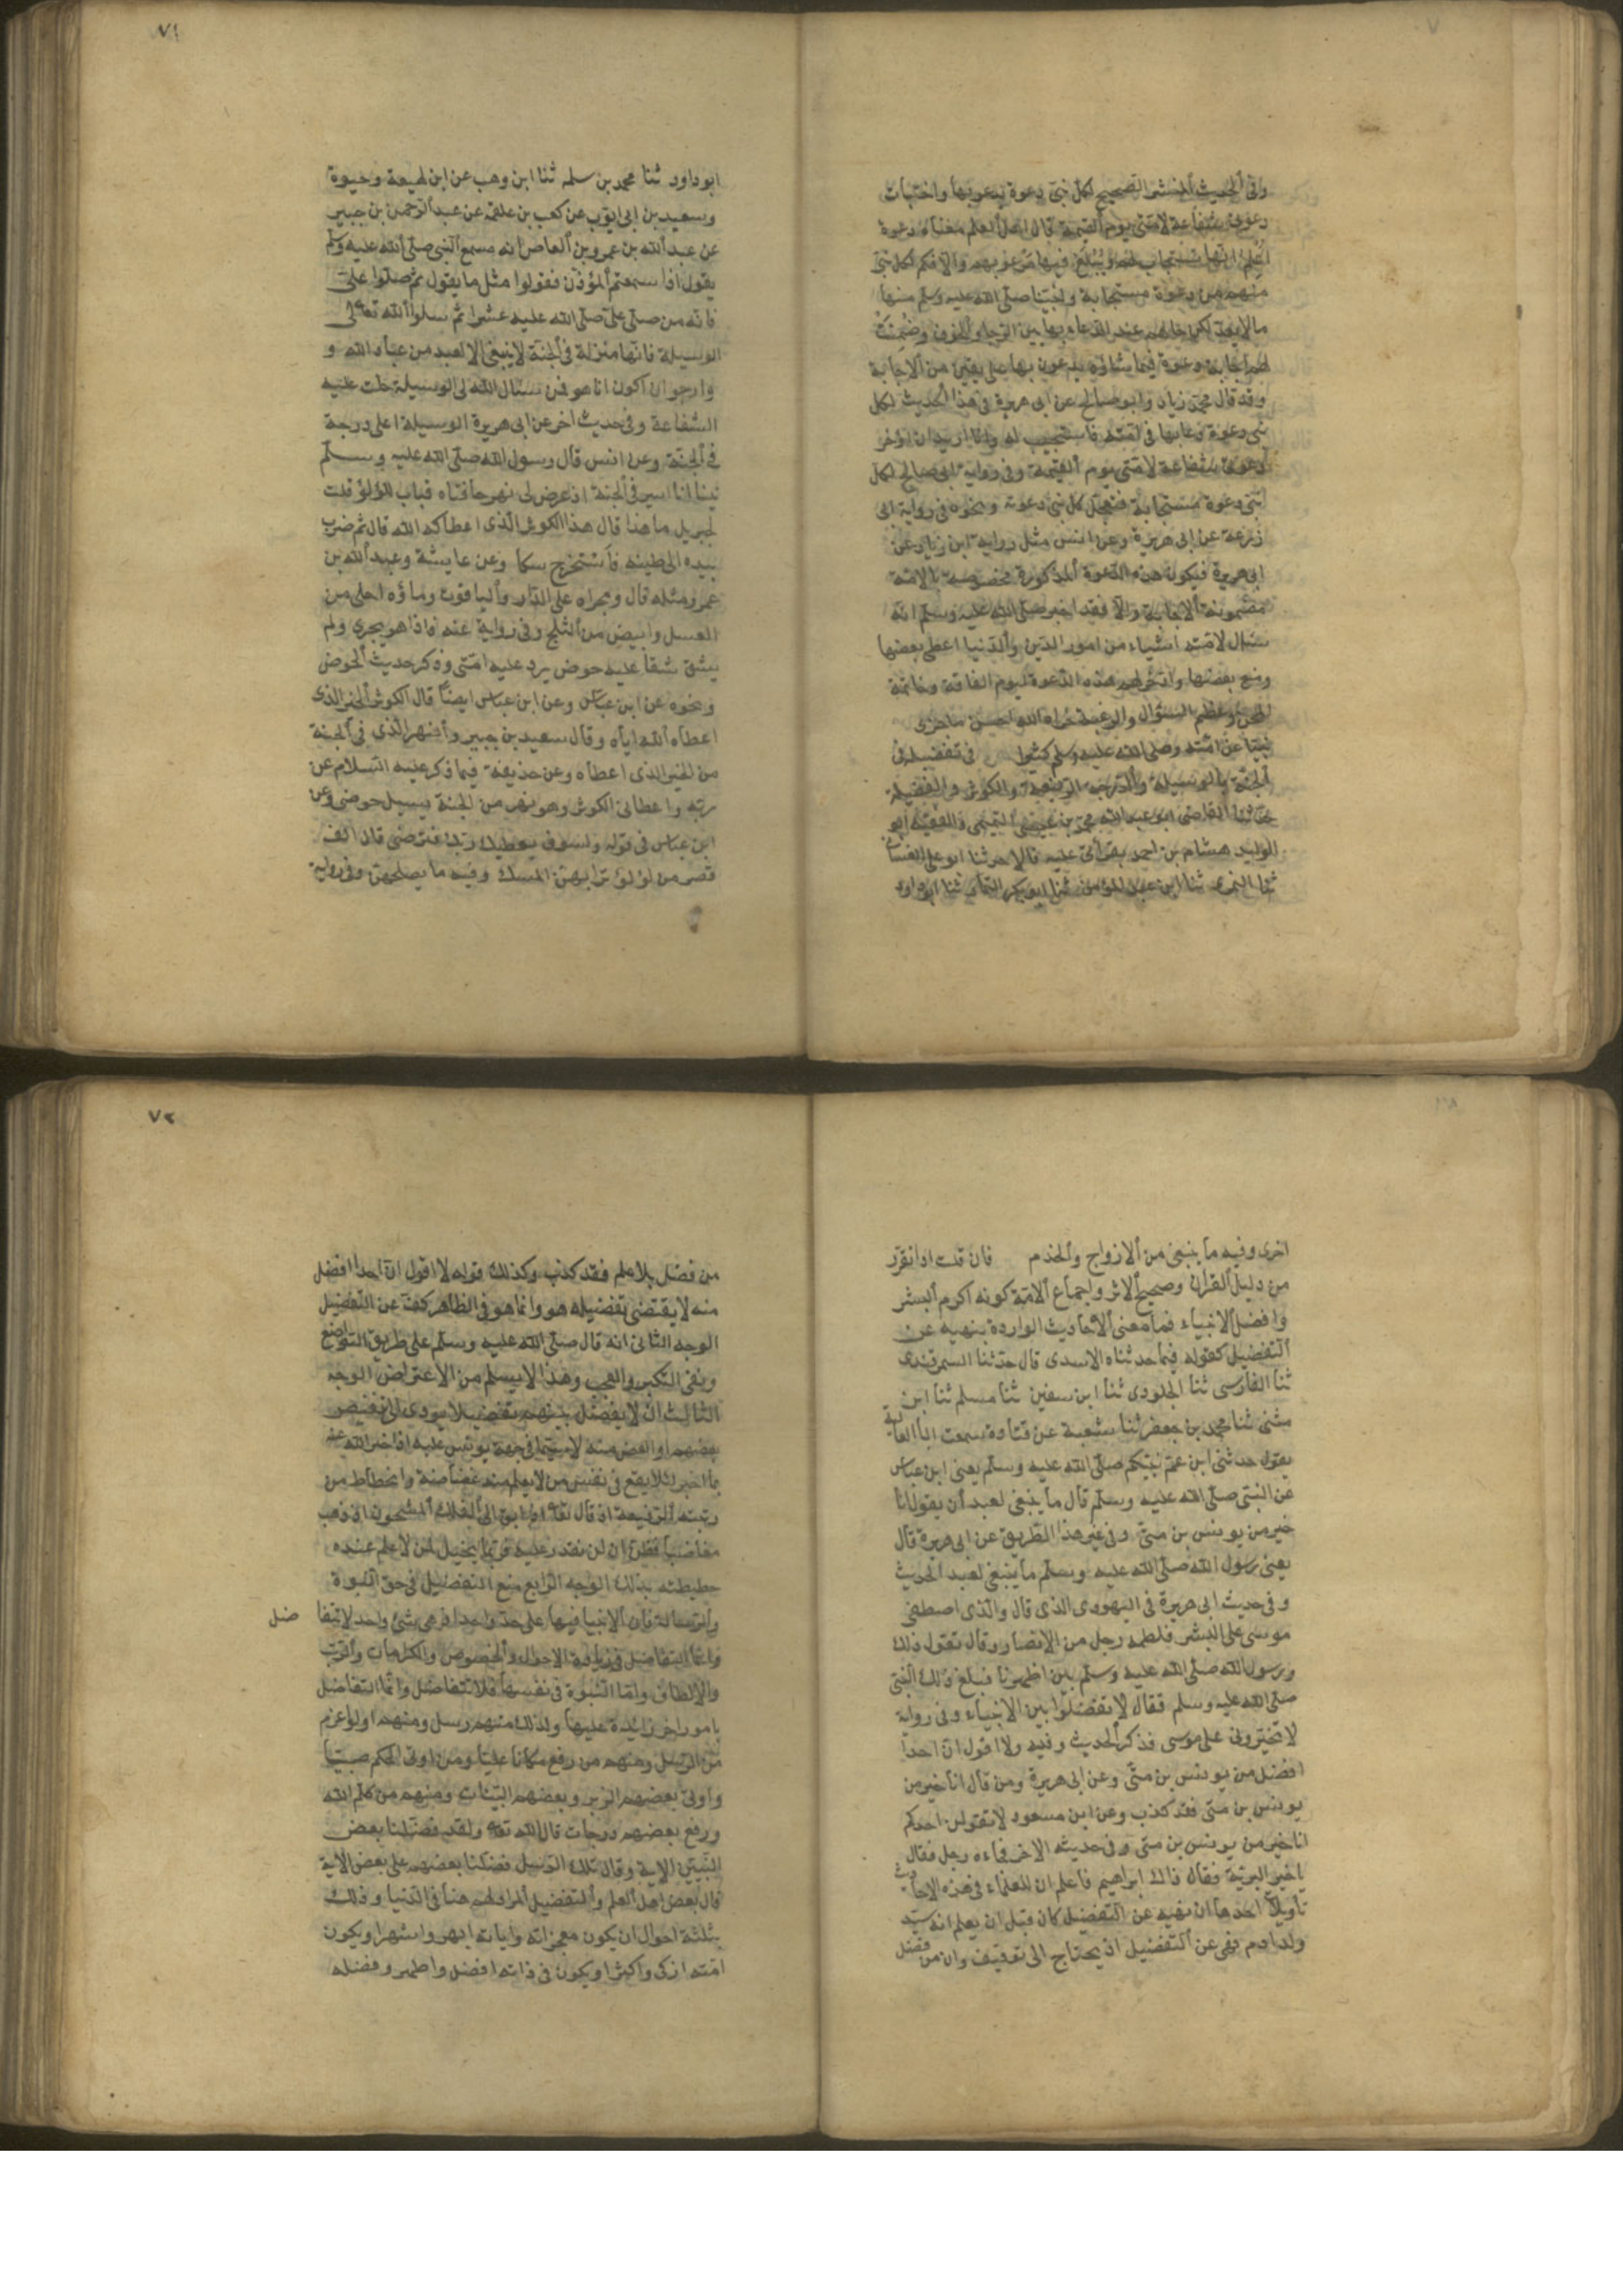 وفى الحديث المنتشر الصحيح لكل نبى دعوة يدعو بها واختبأت
دعوتى شفاعة لامتى يوم القيمة قال اهل العلم معناه دعوة
اعلم انها تستجاب لهم ويبلغ فيها مرغوبهم والا فكم لكل نبى
منهم من دعوة مستجابة ولنبينا صلى الله عليه وسلم منها
ما لا يعد لكن حالهم عند الدعاء بها بين الرجاء والخوف وضمنت
لهم اجابة دعوة فيما شاؤه يدعون بها على يقين من الاجابة
وقد قال محمد بن زياد وابو صالح عن ابى هريرة فى هذا الحديث لكل
نبى دعوة دعا بها فى امته فاستجيب له وانا اريد ان اؤخر
دعوتى شفاعة لامتى يوم القيمة وفى رواية ابى صالح لكل
نبى دعوة مستجابة فتعجل كل نبى دعوته ونحوه فى رواية ابى
زرعة عن ابى هريرة وعن انس مثل رواية ابن زياد عن
ابى هريرة فيكون هذه الدعوة المذكورة مخصوصة بالامة
مضمونة الاجابة والا فقد اخبر صلى الله عليه وسلم انه
سال لامته اشياء من امور الدين والدنيا اعطى بعضها
ومنع بعضها وادخر لهم هذه الدعوة ليوم الفاقة وخاتمة
المحن وعظيم السؤال والرغبة جزاه الله احسن ما جزى
نبيا عن امته وصلى الله عليه وسلم كثيرا فى تفضيله فى
الجنة بالوسيلة والدرجة الرفيعة والكوثر والفضيلة
حدثنا القاضى ابو عبد الله محمد بن عيسى التميمى والفقيه ابو
الوليد هشام بن احمد بقرأتى عليه قالا حدثنا ابو على الغسانى
ثنا النمرى ثنا ابن عبد المؤمن ثنا ابو بكر التمار ثنا ابو داود
٧١
ابو داود ثنا محمد بن سلمه ثنا ابن وهب عن ابن لهيعة وحيوة
وسعيد بن ابى ايوب عن كعب بن علقمة عن عبد الرحمن بن جبير
عن عبد الله بن عمرو بن العاص انه سمع النبى صلى الله عليه وسلم
يقول اذا سمعتم المؤذن فقولوا مثل ما يقول ثم صلوا على
فانه من صلى على صلى الله عليه عشرا ثم سلوا الله تعالى
الوسيلة فانها منزلة فى الجنة لا ينبغى الا لعبد من عباد الله و
وارجو ان اكون انا هو فمن سئال الله لى الوسيلة حلت عليه
الشفاعة وفى حديث اخر عن ابى هريرة الوسيلة اعلى درجة
فى الجنة وعن انس قال رسول الله صلى الله عليه وسلم
بينا انا اسير فى الجنة اذ عرض لى نهر حافتاه قباب اللؤلؤ قلت
لجبريل ما هذا قال هذا الكوثر الذى اعطاكه الله قال ثم ضرب
بيده الى طينه فاستخرج مسكا وعن عايشة وعبد الله بن
عمرو مثله قال ومجراه على الدر والياقوت وماؤه احلى من
العسل وابيض من الثلج وفى رواية عنه فاذا هو يجرى ولم
يشق شقا عليه حوض يرد عليه امتى وذكر حديث الحوض
ونحوه عن ابن عباس وعن ابن عباس ايضا قال الكوثر الخير الذى
اعطاه الله اياه وقال سعيد بن جبير والنهر الذى فى الجنة
من الخير الذى اعطاه وعن حذيفة فيما ذكر عليه السلام عن
ربه واعطانى الكوثر وهو نهر من الجنة يسيل حوضى وعن
ابن عباس فى قوله ولسوف يعطيك ربك فترضى قال الف
قصر من لؤلؤ ترابهن المسك وفيه ما يصلحهن وفى رواية
اخرى وفيه ما ينبغى من الازواج والخدم فان قلت اذا تقرر
من دليل القران وصحيح الاثر واجماع الامة كونه اكرم البشر
وافضل الانبياء فما معنى الاحاديث الواردة بنهيه عن
التفضيل كقوله فيما حدثناه الاسدى قال حدثنا السمرقندى
ثنا الفارسى ثنا الجلودى ثنا ابن سفين ثنا مسلم ثنا ابن
مثنى ثنا محمد بن جعفر ثنا شعبة عن قتادة سمعت ابا العالية
يقول حدثنى ابن عم نبيكم صلى الله عليه وسلم يعنى ابن عباس
عن النبى صلى الله عليه وسلم قال ما ينبغى لعبد ان يقول انا
خير من يونس بن متى وفى غير هذا الطريق عن ابى هريرة قال
يعنى رسول الله صلى الله عليه وسلم ما ينبغى لعبد الحديث
وفى حديث ابى هريرة فى اليهودى الذى قال والذى اصطفى
موسى على البشر فلطمه رجل من الانصار وقال تقول ذلك
ورسول الله صلى الله عليه وسلم بين اظهرنا فبلغ ذلك النبى
صلى الله عليه وسلم فقال لا تفضلوا بين الانبياء وفى رواية
لا تخيرونى على موسى فذكر الحديث وفيه ولا اقول ان احدا
افضل من يونس بن متى وعن ابى هريرة ومن قال انا خير من
يونس بن متى فقد كذب وعن ابن مسعود لا يقولن احدكم
انا خير من يونس بن متى وفى حديثه الاخر فجاءه رجل فقال
يا خير البرية فقال ذاك ابراهيم فاعلم ان للعلماء فى هذه الاحاديث
تأويلا احدها ان نهيه عن التفضيل كان قبل ان يعلم انه سيد
ولد ادم فنهى عن التفضيل اذ يحتاج الى توقيف وان من فضل
٧٢
من فضل بلا علم فقد كذب وكذلك قوله لا اقول ان احدا افضل
منه لا يقتضى تفضيله هو وانما هو فى الظاهر كف عن التفضيل
الوجه الثانى انه قال صلى الله عليه وسلم على طريق التواضع
ونفى التكبر والعجب وهذا لا يسلم من الاعتراض الوجه
الثالث ان لا يفضل بينهم تفضيلا يودى الى تنقيص
بعضهم او الغض منه لا سيما فى جهة يونس عليه اذ اخبر الله عنه
بما اخبر لئلا يقع فى نفس من لا يعلم منه غضاضة وانحطاط من
رتبته الرفيعة اذ قال تعالى اذ ابق الى الفلك المشحون اذ ذهب
مغاضبا فظن ان لن نقدر عليه فربما يخيل لمن لا علم عنده
حطيطته بذلك الوجه الرابع منع التفضيل فى حق النبوة
والرسالة فان الانبيا فيها على حد واحد اذ هى شئ واحد لا تتفا
ضل
وانما التفاضل فى زيادة الاحوال والخصوص والكرامات والرتب
والالطاف واما النبوة فى نفسها فلا تتفاضل وانما التفاضل
بامور اخر زائدة عليها ولذلك منهم رسل ومنهم اولو عزم
من الرسل ومنهم من رفع مكانا عليا ومن اوتى الحكم صبيا
واوتى بعضهم الزبر وبعضهم البينات ومنهم من كلم الله
ورفع بعضهم درجات قال الله تعالى ولقد فضلنا بعض
النبيين الاية وقال تلك الرسل فضلنا بعضهم على بعض الاية
قال بعض اهل العلم والتفضيل المراد لهم هنا فى الدنيا وذلك
بثلثة احوال ان يكون معجزاته واياته ابهر واشهر او يكون
امته ازكى واكثر او يكون فى ذاته افضل واطهر وفضله